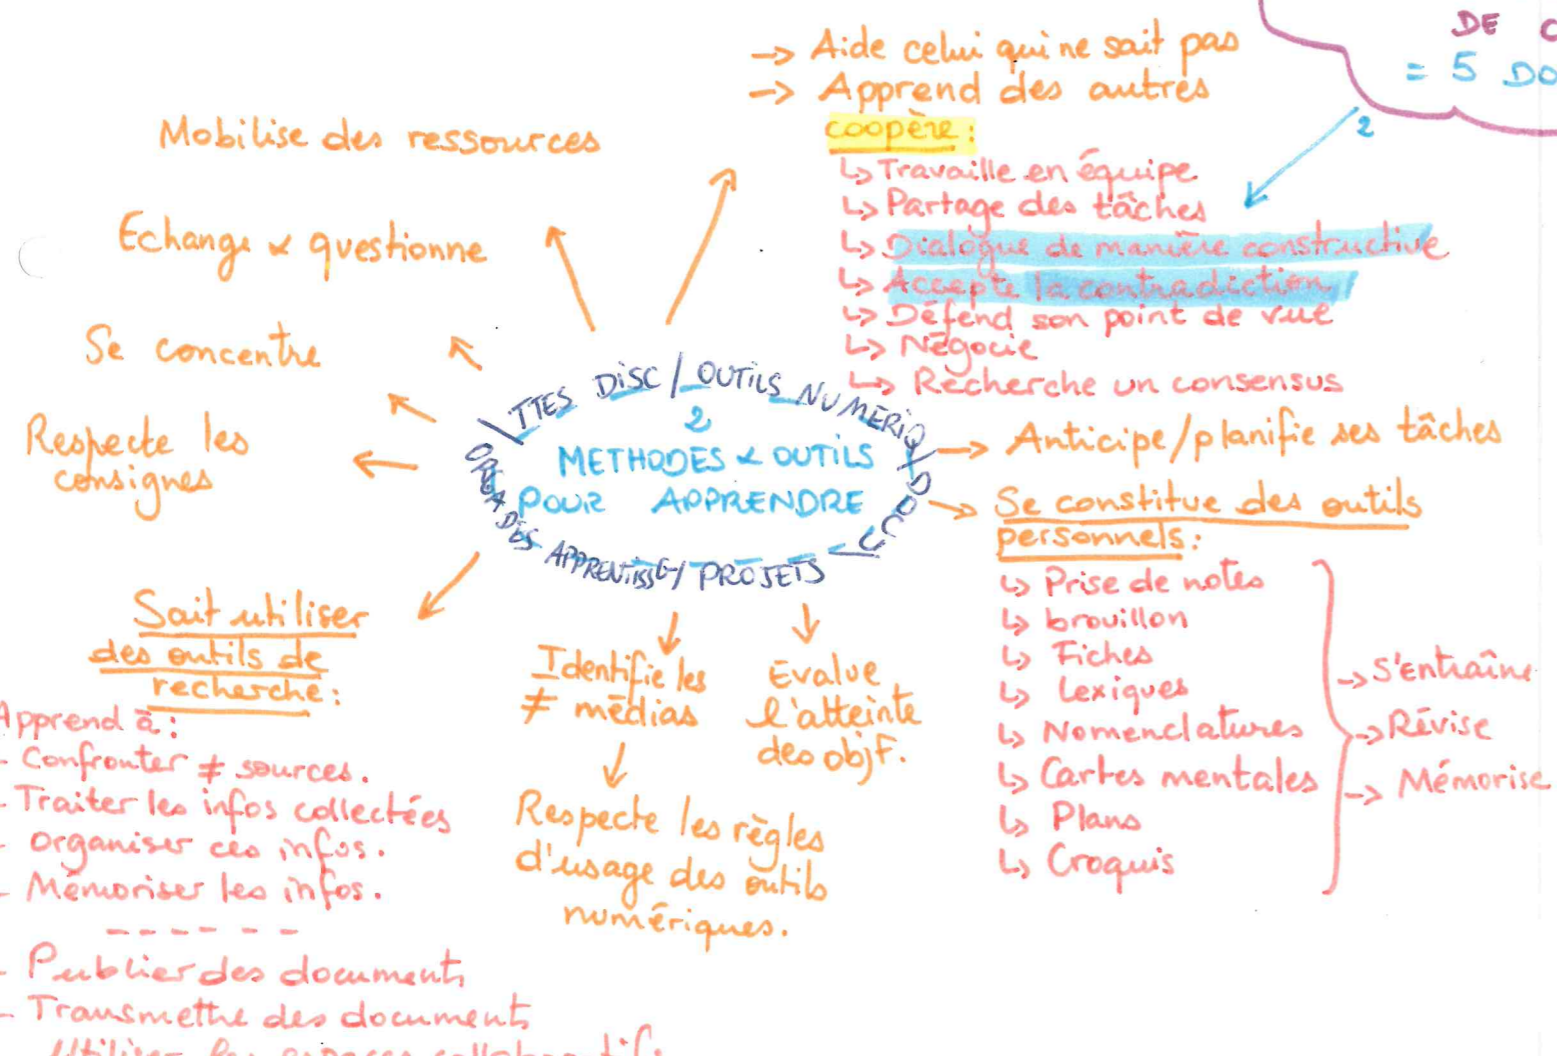 DE
= 5 DO
2
→ Aide celui qui ne sait pas
→ Apprend des autres
coopère :
↳ Travaille en équipe
↳ Partage des tâches
↳ Dialogue de manière constructive
↳ Accepte la contradiction
↳ Défend son point de vue
↳ Négocie
↳ Recherche un consensus
Mobilise des ressources
Echange & questionne
Se concentre
Respecte les
consignes
TTES DISC / OUTILS NUMERIQ / DOCU
2
METHODES & OUTILS
POUR APPRENDRE
ORGA DES APPRENTISSG / PROJETS
→ Anticipe/planifie ses tâches
→ Se constitue des outils
personnels :
↳ Prise de notes
↳ brouillon
↳ Fiches
↳ Lexiques
↳ Nomenclatures
↳ Cartes mentales
↳ Plans
↳ Croquis
→ S'entraîne
→ Révise
→ Mémorise
Sait utiliser
des outils de
recherche :
Apprend à :
- Confronter ≠ sources.
- Traiter les infos collectées
- Organiser ces infos.
- Mémoriser les infos.
- - - - - -
- Publier des documents
- Transmettre des documents
Utiliser les espaces collaboratifs
Identifie les
≠ médias
Respecte les règles
d'usage des outils
numériques.
Evalue
l'atteinte
des objf.